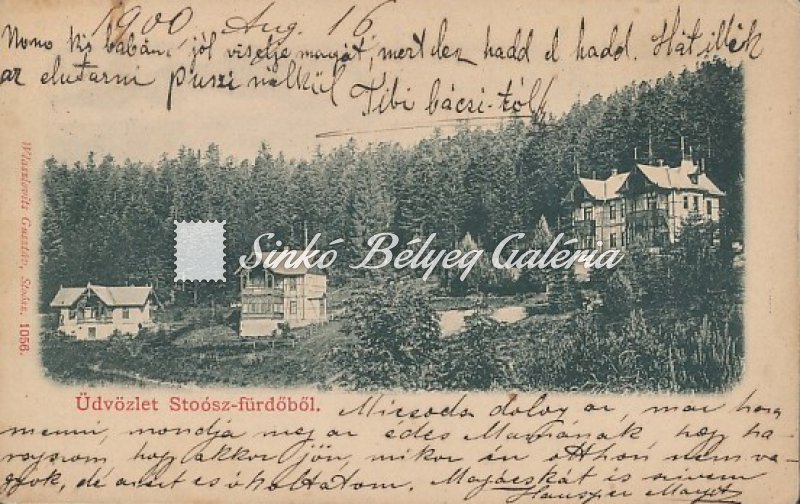 1900 Aug. 16
Nono kis babám jól viselje magát, mert lesz hadd el hadd. Hát illik
az elutazni puszi nélkül Tibi bácsi-tól
Wlaszlovits Gusztáv, Stoósz. 1056.
Sinkó Bélyeg Galéria
Üdvözlet Stoósz-fürdőből. Micsoda dolog az, már haza
menni, mondja meg az édes Mamának hogy ha-
ragszom hogy akkor jön, mikor én otthon nem va-
gyok, de azért csókoltatom. is szivem